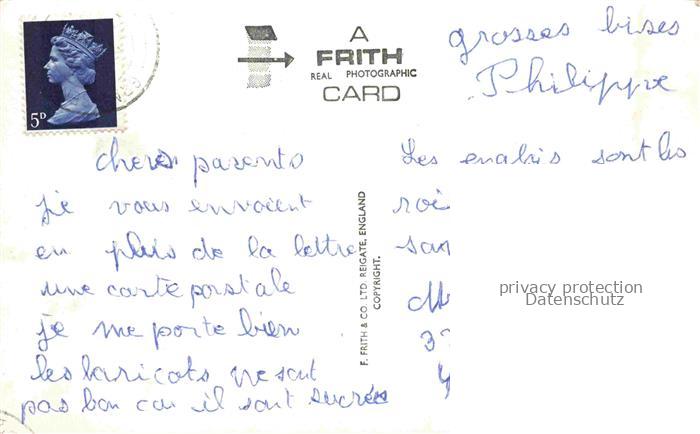 5D
A
FRITH
REAL PHOTOGRAPHIC
CARD
grosses bises
Philippe
chers parents
je vous envoient
en plus de la lettre
une carte postale
je me porte bien
les haricots ne sont
pas bon car il sont sucrées
Les sont les
F. FRITH & CO. LTD. REIGATE, ENGLAND
COPYRIGHT.
privacy protection
Datenschutz